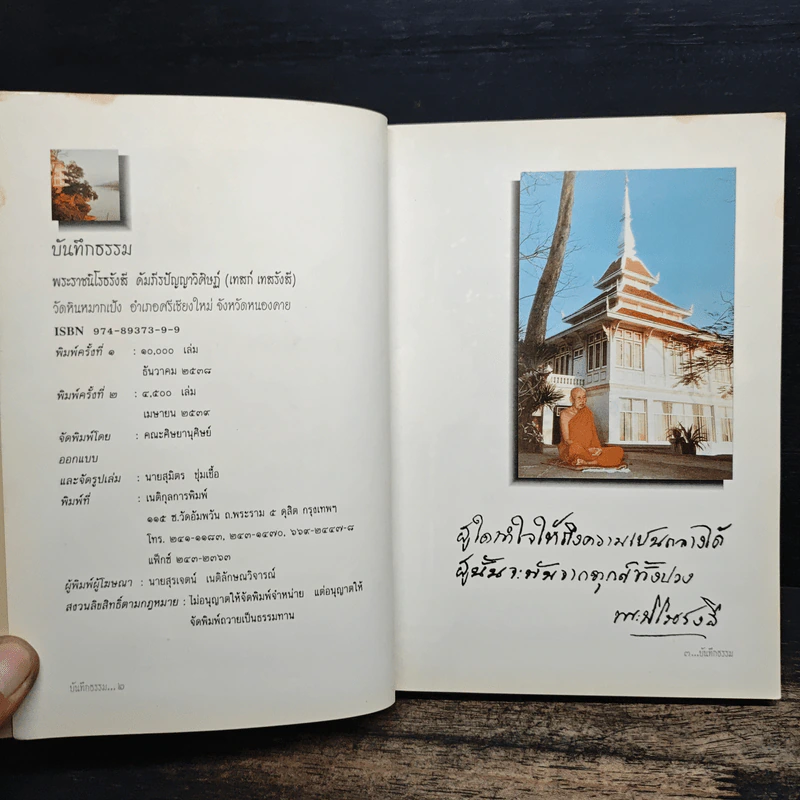 บันทึกธรรม
พระราชนิโรธรังสี คัมภีรปัญญาวิศิษฏ์ (เทสก์ เทสรังสี)
วัดหินหมากเป้ง อำเภอศรีเชียงใหม่ จังหวัดหนองคาย
ISBN 974-89373-9-9
พิมพ์ครั้งที่ ๑ : ๑๐,๐๐๐ เล่ม
ธันวาคม ๒๕๓๘
พิมพ์ครั้งที่ ๒ : ๔,๕๐๐ เล่ม
เมษายน ๒๕๓๙
จัดพิมพ์โดย : คณะศิษยานุศิษย์
ออกแบบ
และจัดรูปเล่ม : นายสุมิตร ชุ่มเชื้อ
พิมพ์ที่ : เนติกุลการพิมพ์
๑๑๕ ซ.วัดอัมพวัน ถ.พระราม ๕ ดุสิต กรุงเทพฯ
โทร. ๒๔๑-๑๑๘๓, ๒๔๓-๑๔๗๐, ๖๖๙-๒๔๔๗-๘
แฟ็กซ์ ๒๔๓-๒๓๖๓
ผู้พิมพ์ผู้โฆษณา : นายสุรเจตน์ เนติลักษณวิจารณ์
สงวนลิขสิทธิ์ตามกฎหมาย : ไม่อนุญาตให้จัดพิมพ์จำหน่าย แต่อนุญาตให้
จัดพิมพ์ถวายเป็นธรรมทาน
บันทึกธรรม... ๒
ผู้ใดทำใจให้ถึงความเป็นกลางได้
ผู้นั้นจะพ้นจากทุกข์ทั้งปวง
๓...บันทึกธรรม